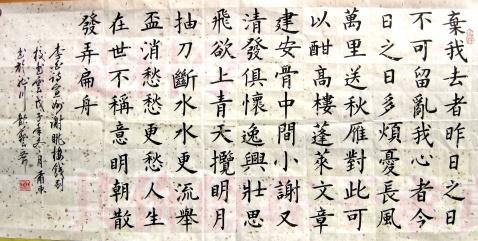 棄我去者昨日之日
不可留亂我心者今
日之日多煩憂長風
萬里送秋雁對此可
以酣高樓蓬萊文章
建安骨中間小謝又
清發俱懷逸興壯思
飛欲上青天攬明月
抽刀斷水水更流舉
盃消愁愁更愁人生
在世不稱意明朝散
發弄扁舟
李白詩宣州謝朓樓餞別
校書雲戊子年